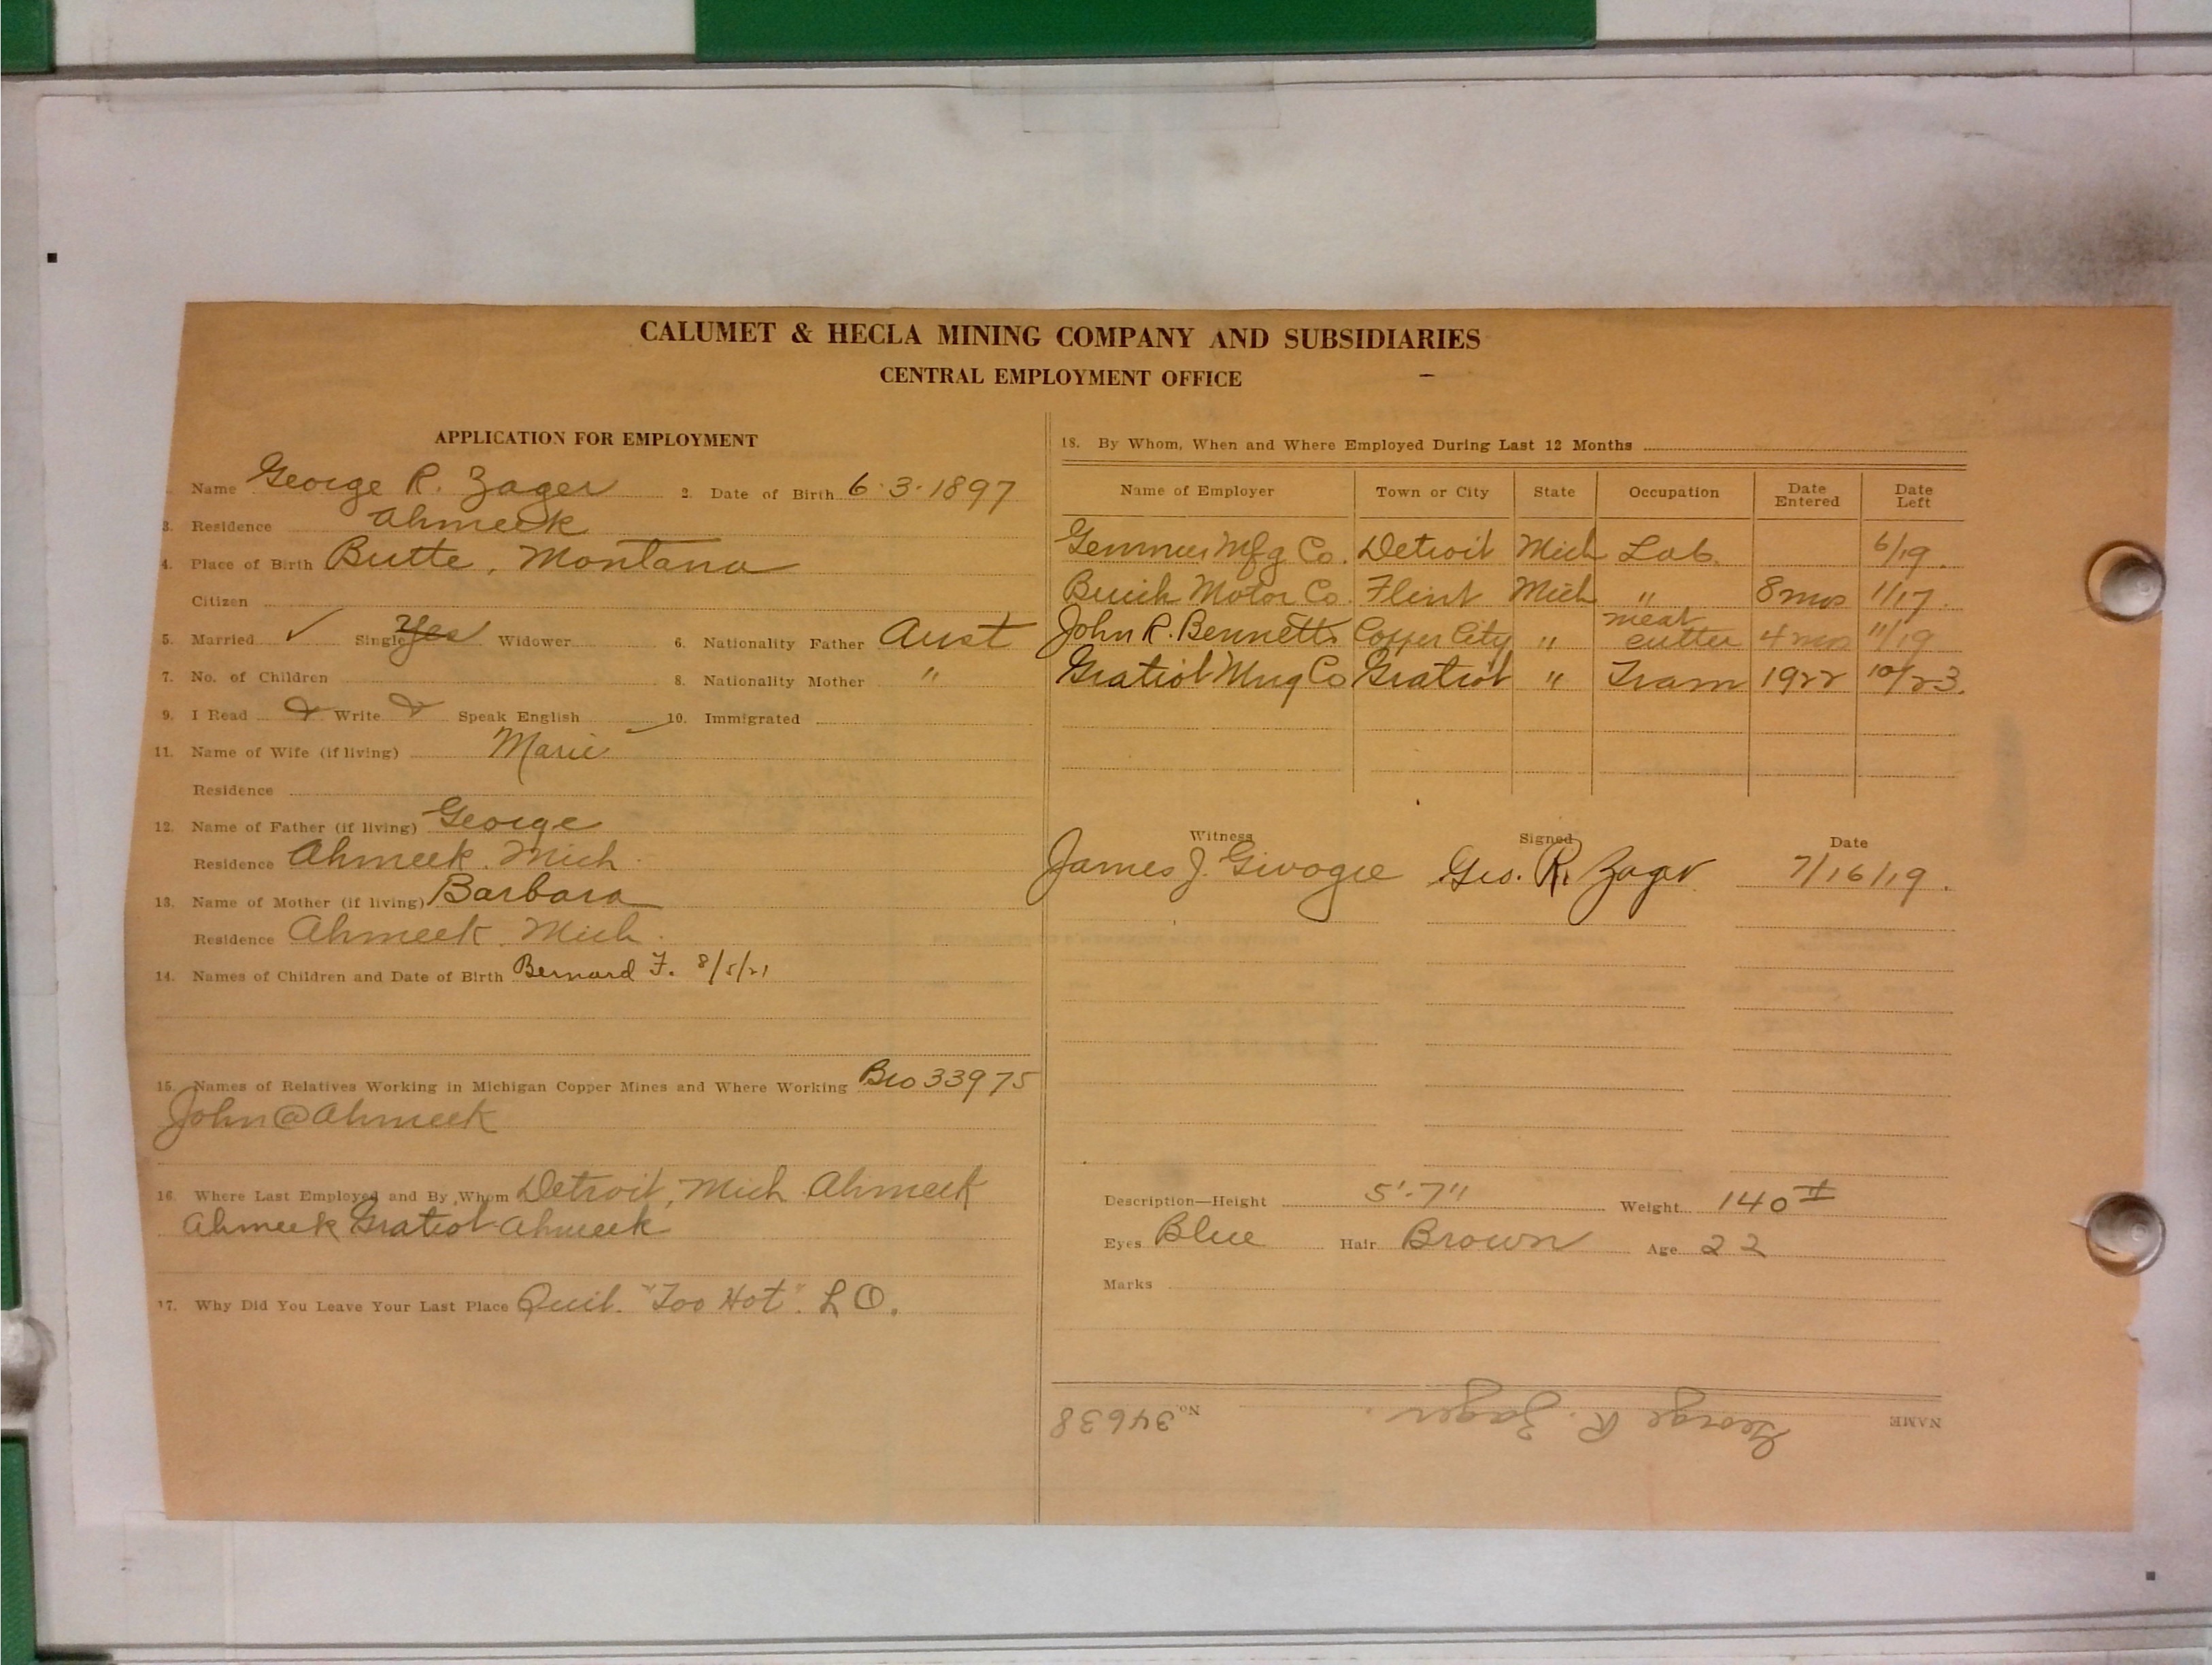 CALUMET & HECLA MINING COMPANY AND SUBSIDIARIES
CENTRAL EMPLOYMENT OFFICE
APPLICATION FOR EMPLOYMENT
Name George R. Zager 2. Date of Birth 6-3-1897
3. Residence Ahmeek
4. Place of Birth Butte, Montana
Citizen
5. Married ✓ Single Yes Widower 6. Nationality Father Aust
7. No. of Children 8. Nationality Mother "
9. I Read Write Speak English 10. Immigrated
11. Name of Wife (if living) Marie
Residence
12. Name of Father (if living) George
Residence Ahmeek Mich
13. Name of Mother (if living) Barbara
Residence Ahmeek Mich.
14. Names of Children and Date of Birth Bernard F. 8/5/21
15. Names of Relatives Working in Michigan Copper Mines and Where Working Bro 33975
John @ Ahmeek
16. Where Last Employed and By Whom Detroit, Mich Ahmeek
Ahmeek Gratiot Ahmeek
17. Why Did You Leave Your Last Place Quit. "Too Hot". L O.
18. By Whom, When and Where Employed During Last 12 Months
Name of Employer Town or City State Occupation Date Entered Date Left
Mfg Co. Detroit Mich Lab. 6/19.
Buick Motor Co. Flint Mich " 8 mos 1/17.
John R. Bennetts Copper City " meat cutter 4 mos 11/19
Gratiot Mng Co Gratiot " Tram 1922 10/23.
Witness Signed Date
James J. Geo. R. Zager 7/16/19.
Description—Height 5'-7" Weight 140 #
Eyes Blue Hair Brown Age 22
Marks
NAME George R. Zager. No. 34638